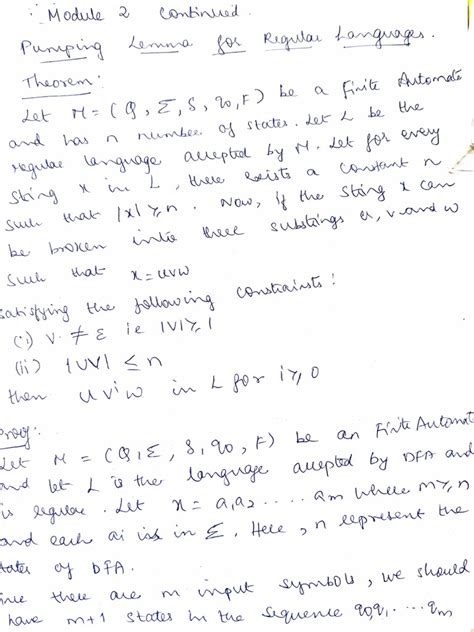 Module 2 continued.
Pumping Lemma for Regular Languages.
Theorem:
Let M = (Q, Σ, δ, q0, F) be a Finite Automata
and has n number of states. Let L be the
regular language accepted by M. Let for every
string x in L, there exists a constant n
such that |x| ≥ n. Now, if the string x can
be broken into three substrings u, v and w
such that x = uvw
satisfying the following constraints:
(i) V ≠ ε ie |V| ≥ 1
(ii) |UV| ≤ n
then uvⁱw in L for i ≥ 0
Proof:
Let M = (Q, Σ, δ, q0, F) be an Finite Automata
and let L is the language accepted by DFA and
is regular. Let x = a1 a2 ..... am where m ≥ n
and each ai is in Σ. Here, n represent the
states of DFA.
there are m input symbols, we should
have m+1 states in the sequence q0 q1 .... qm